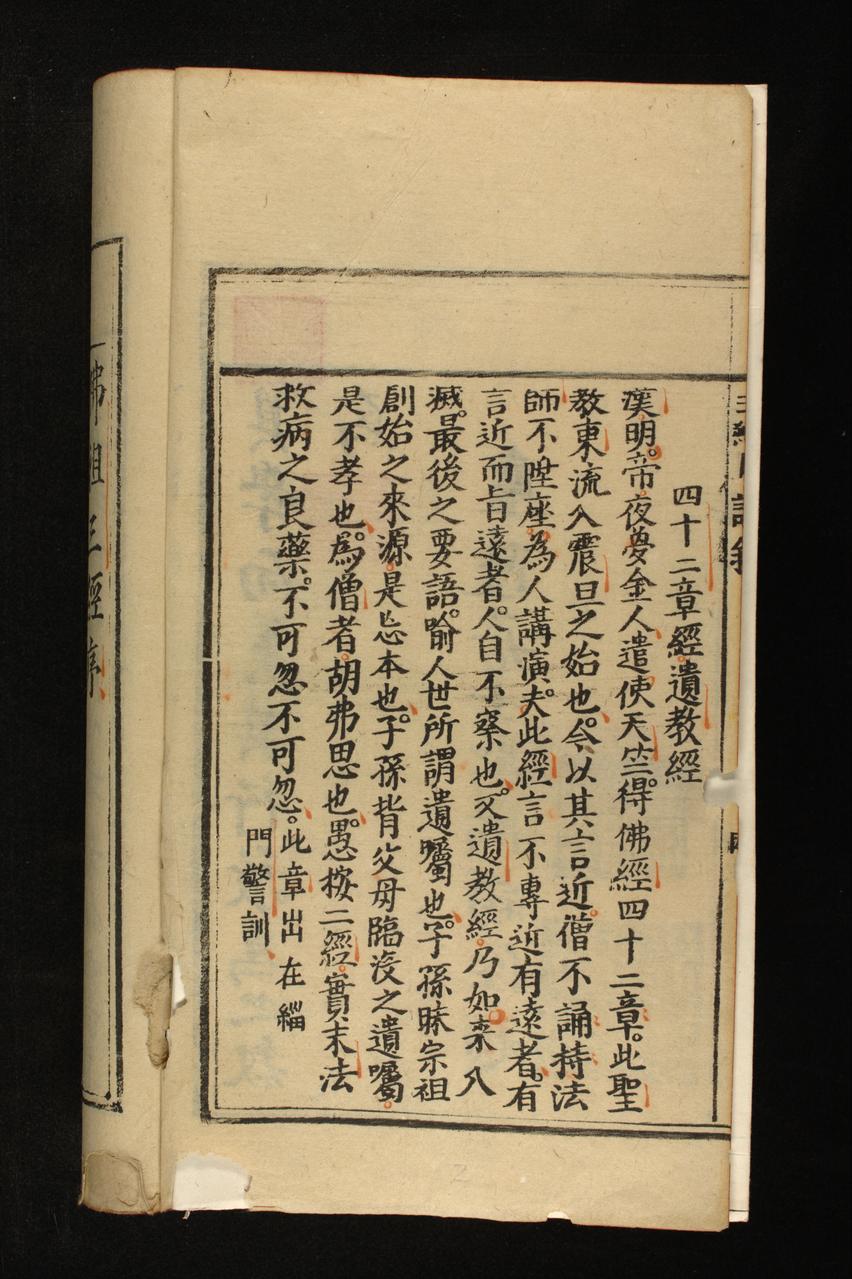 四十二章經遺教經
漢明帝。夜夢金人遣使天竺。得佛經四十二章。此聖
教東流入震旦之始也。今以其言近。僧不誦持法
師不陞座。為人講演。夫此經言不專近有遠者。有
言近而旨遠者。人自不察也。又遺教經。乃如来入
滅。最後之要語。喻人世所謂遺囑也。子孫昧宗祖
創始之來源。是忘本也。子孫背父母臨没之遺囑。
是不孝也。為僧者。胡弗思也。愚按二經。實末法
救病之良藥。不可忽不可忽。此章出在緇
門警訓
佛祖三經序